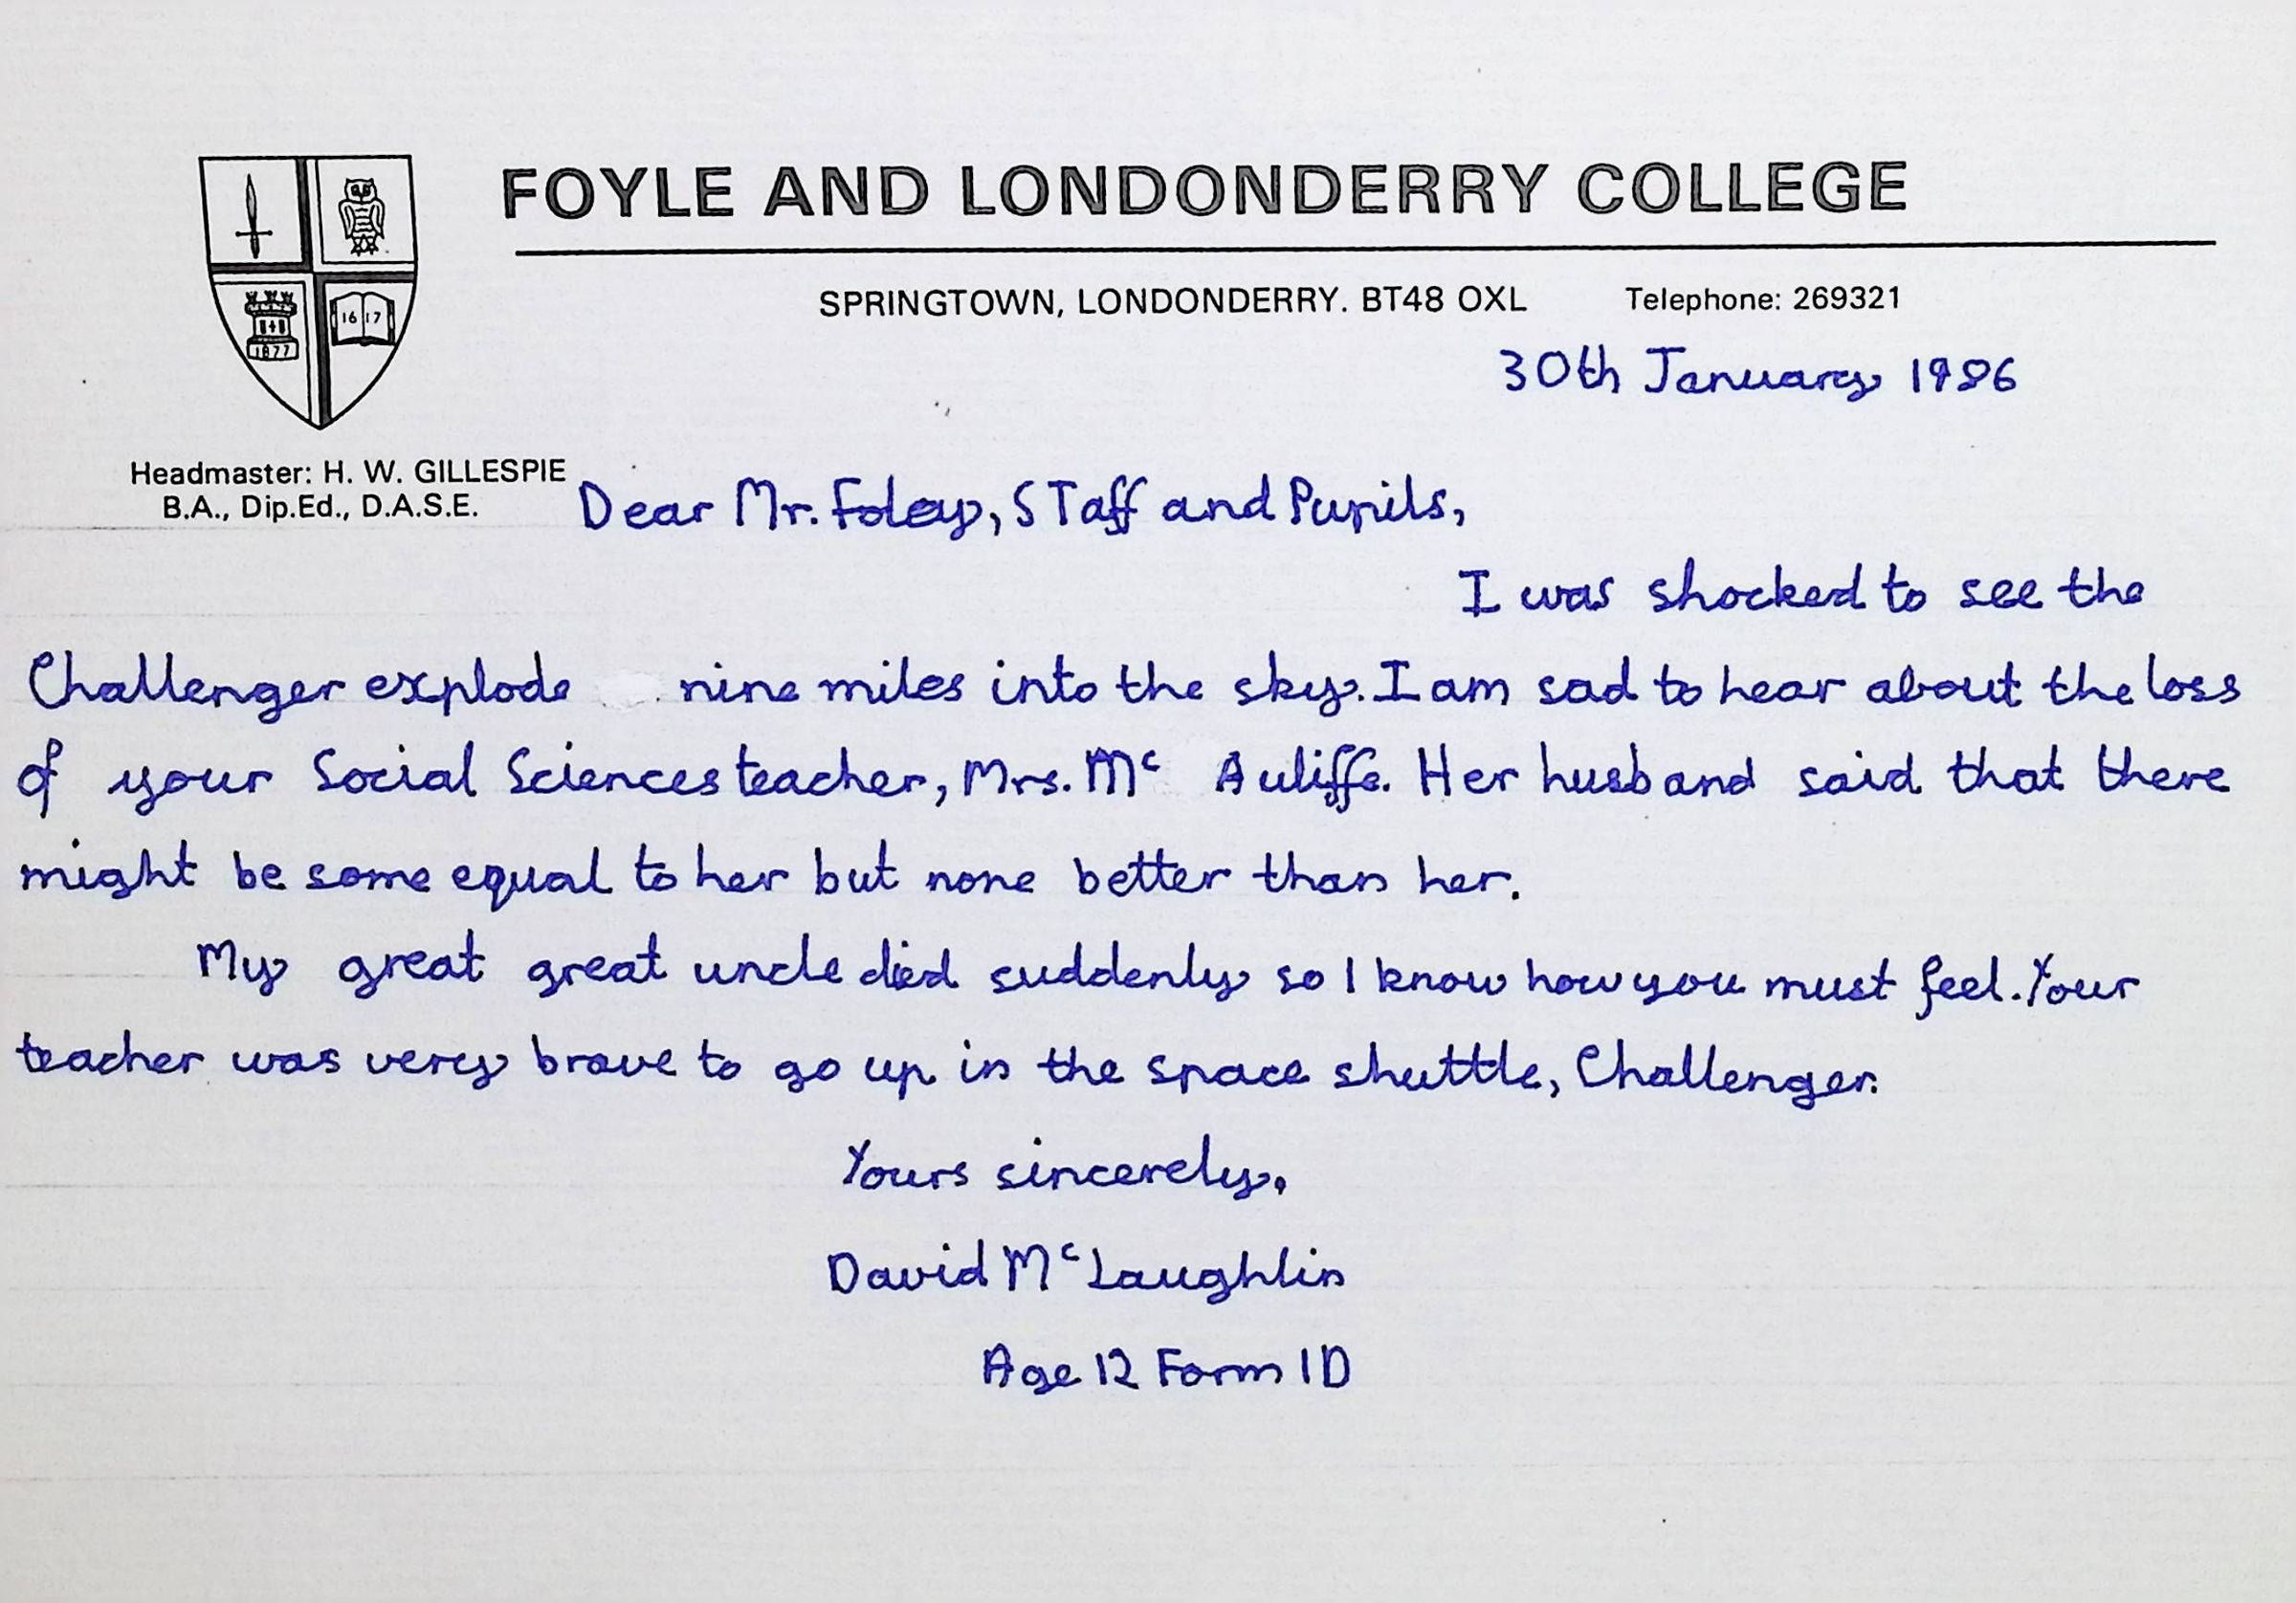 FOYLE AND LONDONDERRY COLLEGE
SPRINGTOWN, LONDONDERRY. BT48 OXL Telephone: 269321
16 17
1877
30th January 1986
Headmaster: H. W. GILLESPIE
B.A., Dip.Ed., D.A.S.E.
Dear Mr. Foley, STaff and Pupils,
I was shocked to see the
Challenger explode nine miles into the sky. I am sad to hear about the loss
of your Social Sciences teacher, Mrs. Mc Auliffe. Her husband said that there
might be some equal to her but none better than her.
My great great uncle died suddenly so I know how you must feel. Your
teacher was very brave to go up in the space shuttle, Challenger.
Yours sincerely,
David McLaughlin
Age 12 Form 1D